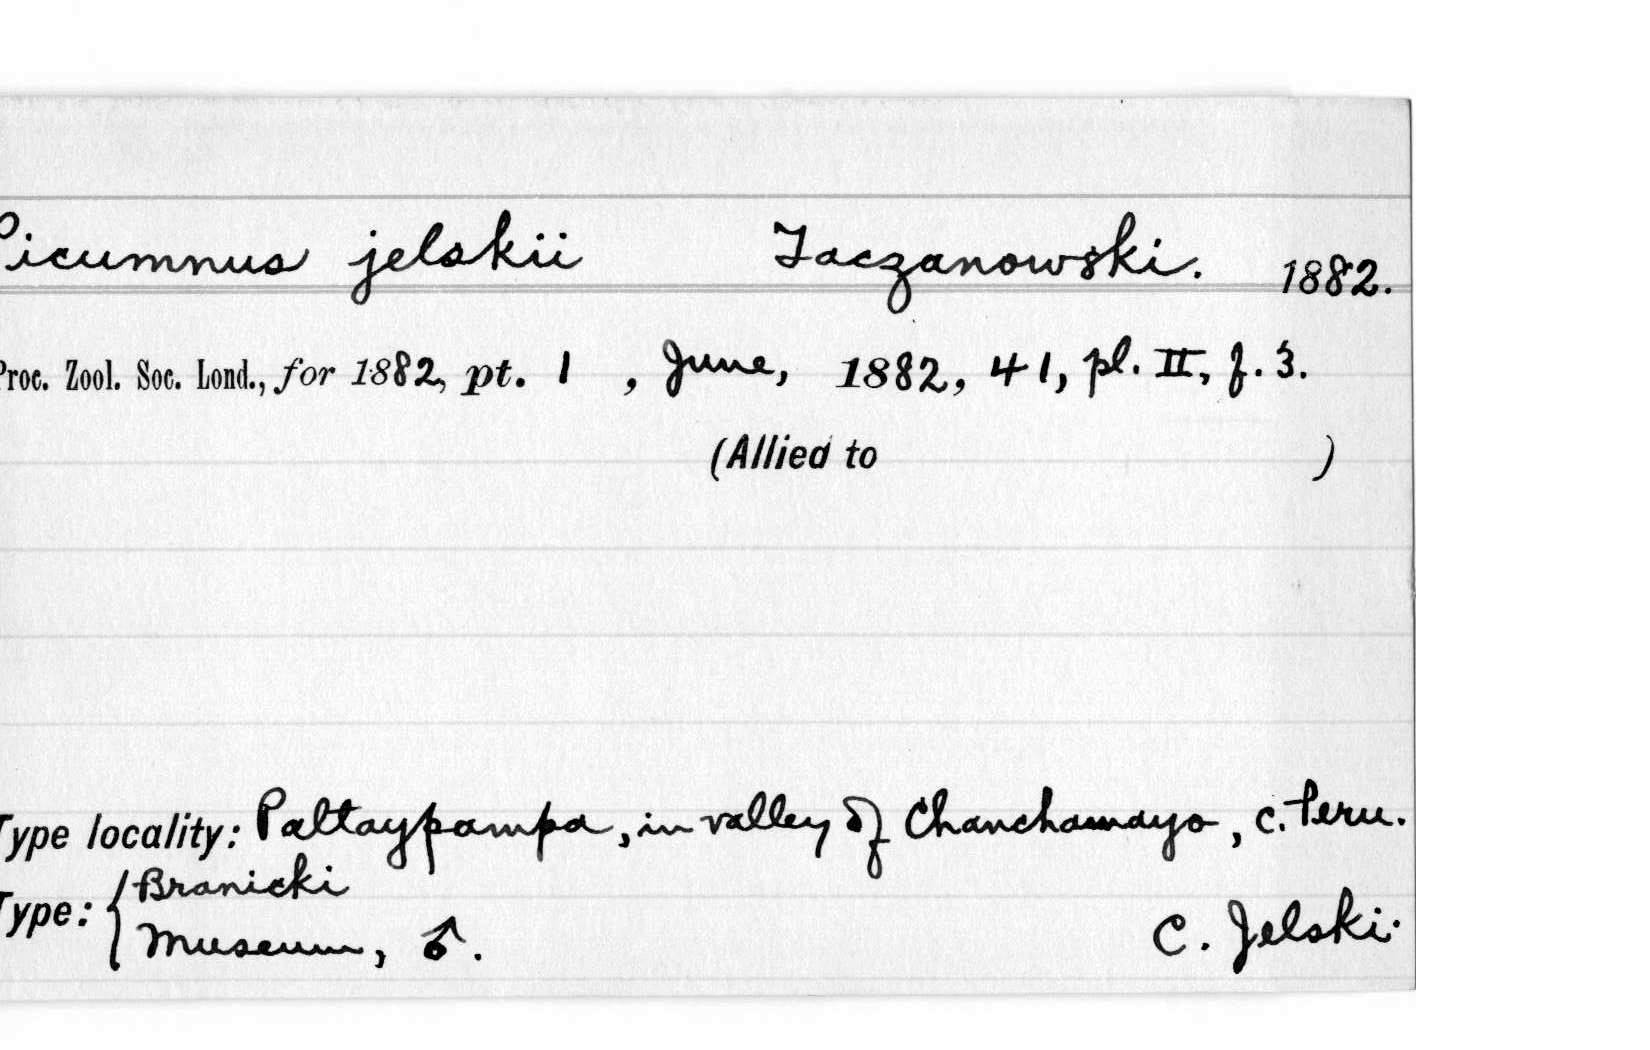 Picumnus jelskii Taczanowski. 1882.
Proc. Zool. Soc. Lond., for 1882, pt. 1, June, 1882, 41, pl. II, f. 3.
(Allied to )
Type locality: Paltaypampa, in valley of Chanchamayo, c. Peru.
Type: { Branicki
Museum, ♂. C. Jelski.